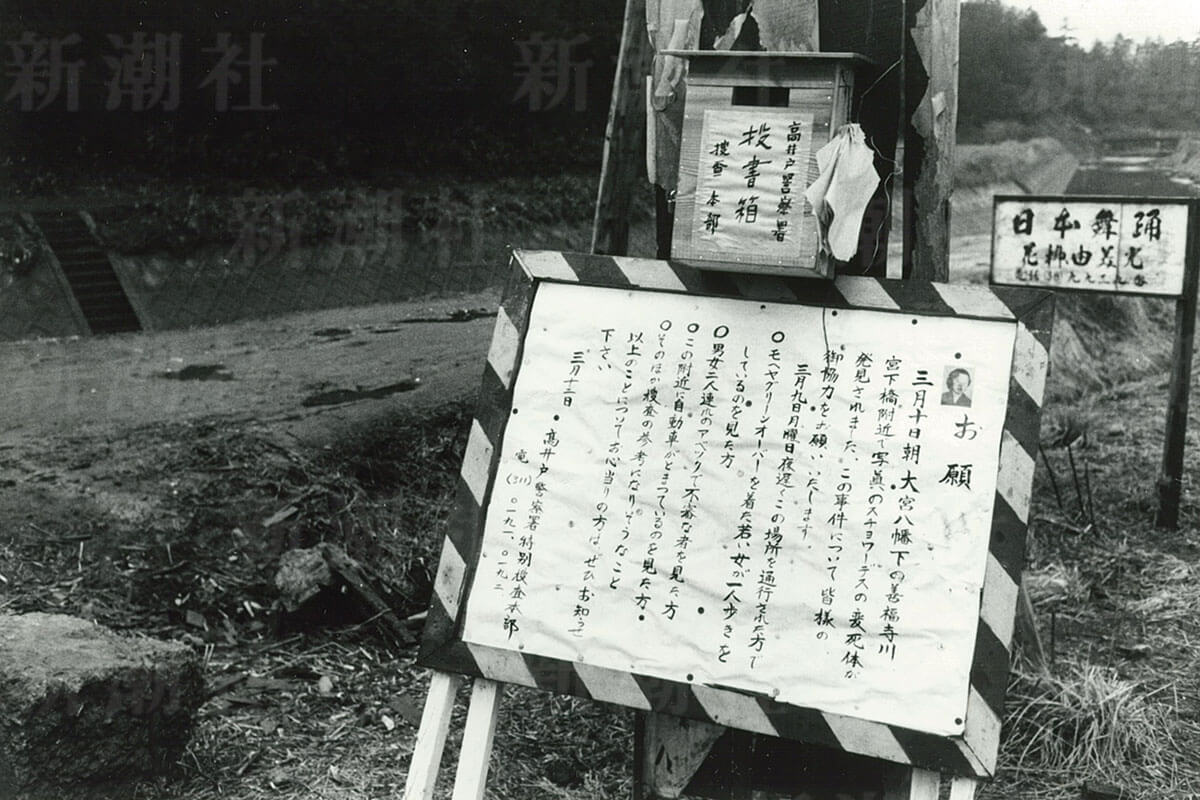 新潮社
高井戸警察署
投書箱
捜査本部
日本舞踊
花柳由美光
お願
三月十日朝大宮八幡下の善福寺川
宮下橋附近で写真のスチュワーデスの変死体が
発見されました、この事件について皆様の
御協力をお願いいたします。
三月九日月曜日夜遅くこの場所を通行された方で
○モヘヤグリーンオーバーを着た若い女が一人歩きを
しているのを見た方
○男女二人連れのアベックで不審な者を見た方
○この附近に自動車がとまっているのを見た方
○そのほか捜査の参考になりそうなこと
以上のことについてお心当りの方はぜひお知らせ
下さい
三月十二日
高井戸警察署特別捜査本部
電(311)〇一九一、〇一九二